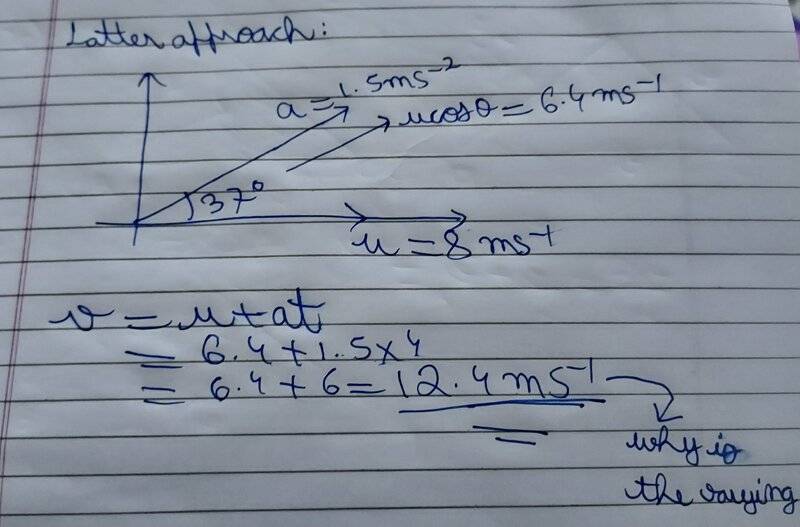 Latter approach:
a = 1.5ms⁻²
ucosθ = 6.4 ms⁻¹
37°
u = 8 ms⁻¹
v = u + at
= 6.4 + 1.5 x 4
= 6.4 + 6 = 12.4 ms⁻¹
why is
the varying